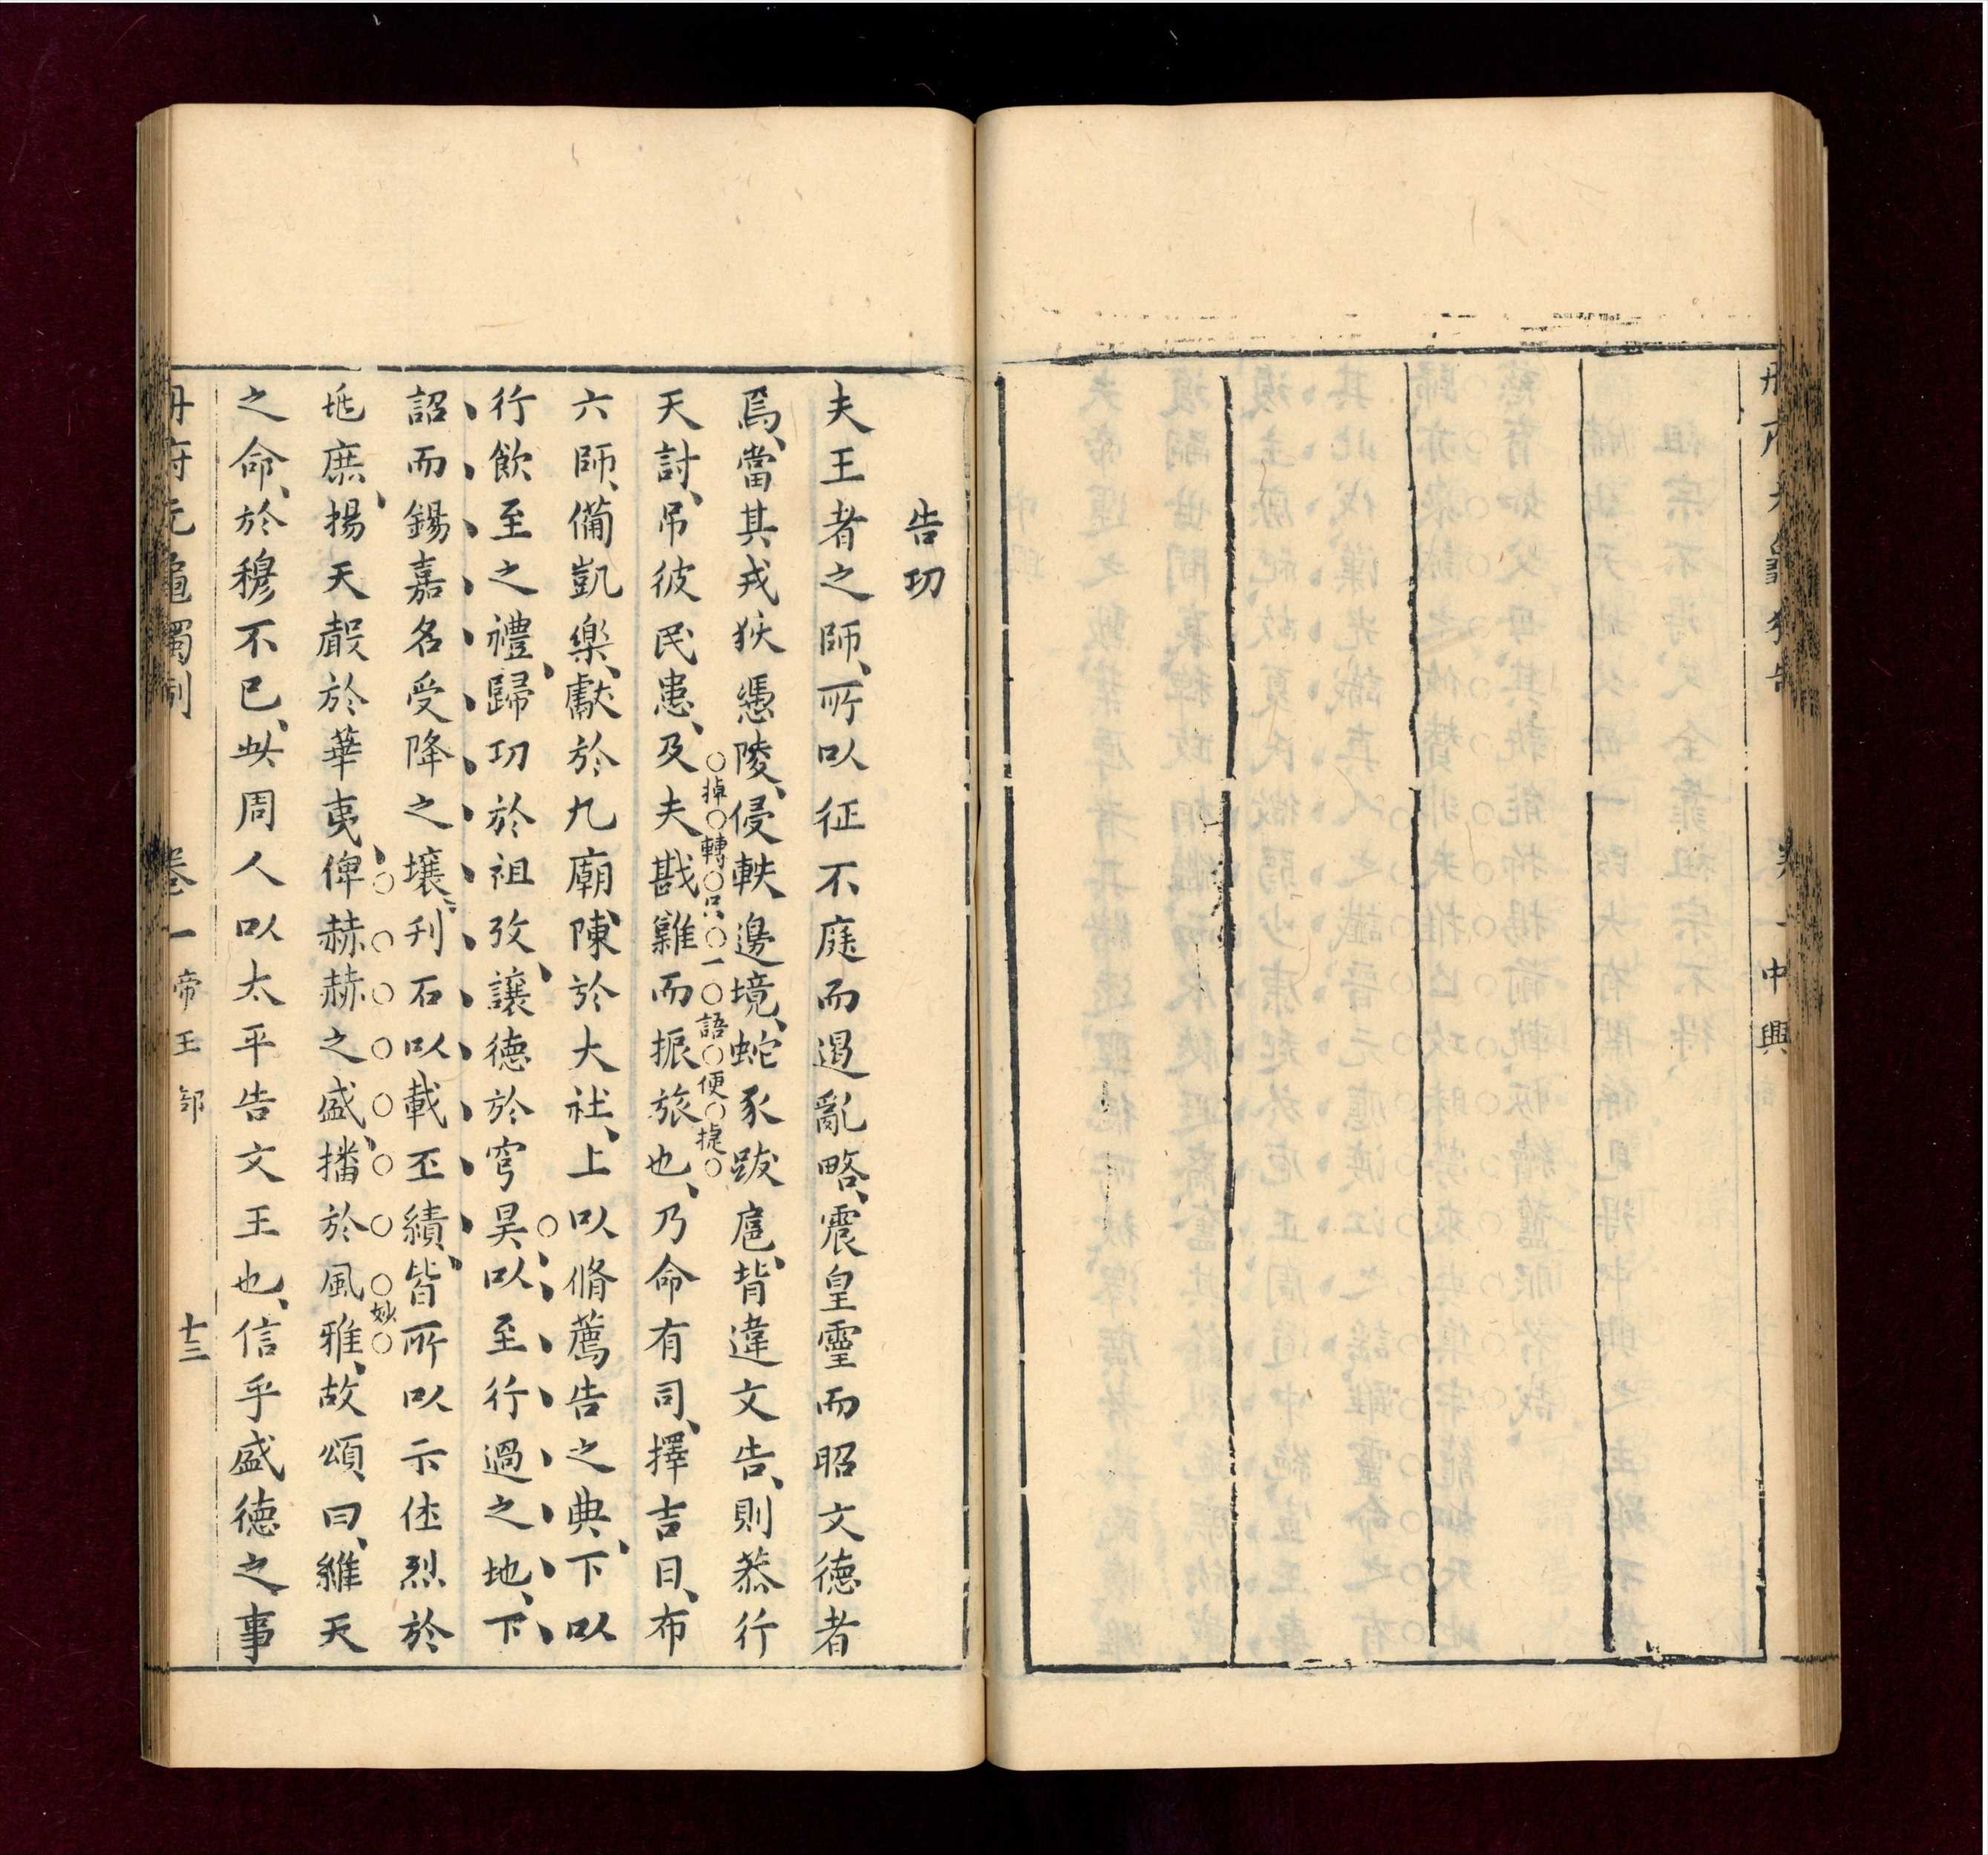 卷一中興
告功
夫王者之師、所以征不庭而遏亂略、震皇靈而昭文德者
焉、當其戎狄憑陵、侵軼邊境、蛇豕跋扈、背違文告、則恭行
掉轉只一語便捷
天討、吊彼民患、及夫戡難而振旅也、乃命有司、擇吉日、布
六師、備凱樂、獻於九廟、陳於大社、上以脩薦告之典、下以
行飲至之禮、歸功於祖攷、讓德於穹昊、以至行過之地、下
詔而錫嘉名、受降之壤、刋石以載丕績、皆所以示徃烈於
𠀉庶、揚天聲於華夷、俾赫赫之盛、播於風雅、故頌曰、維天
妙
之命、於穆不已、此周人以太平告文王也、信乎盛德之事
冊府元龜獨制 卷一帝王部 十三